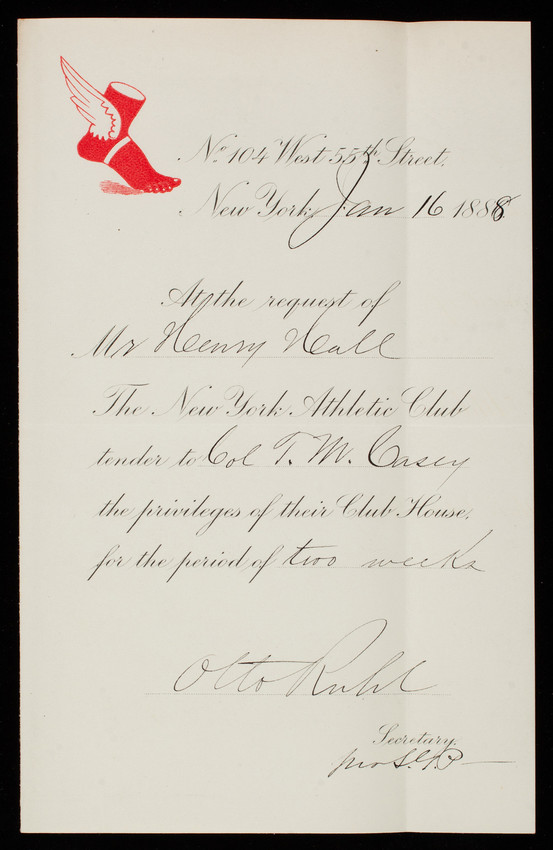 No. 104 West 55th Street.
New York, Jan 16 1888
At the request of
Mr Henry Hall
The New York Athletic Club
tender to Col T. M. Casey
the privileges of their Club House,
for the period of two weeks
Otto Ruhl
Secretary.
pro